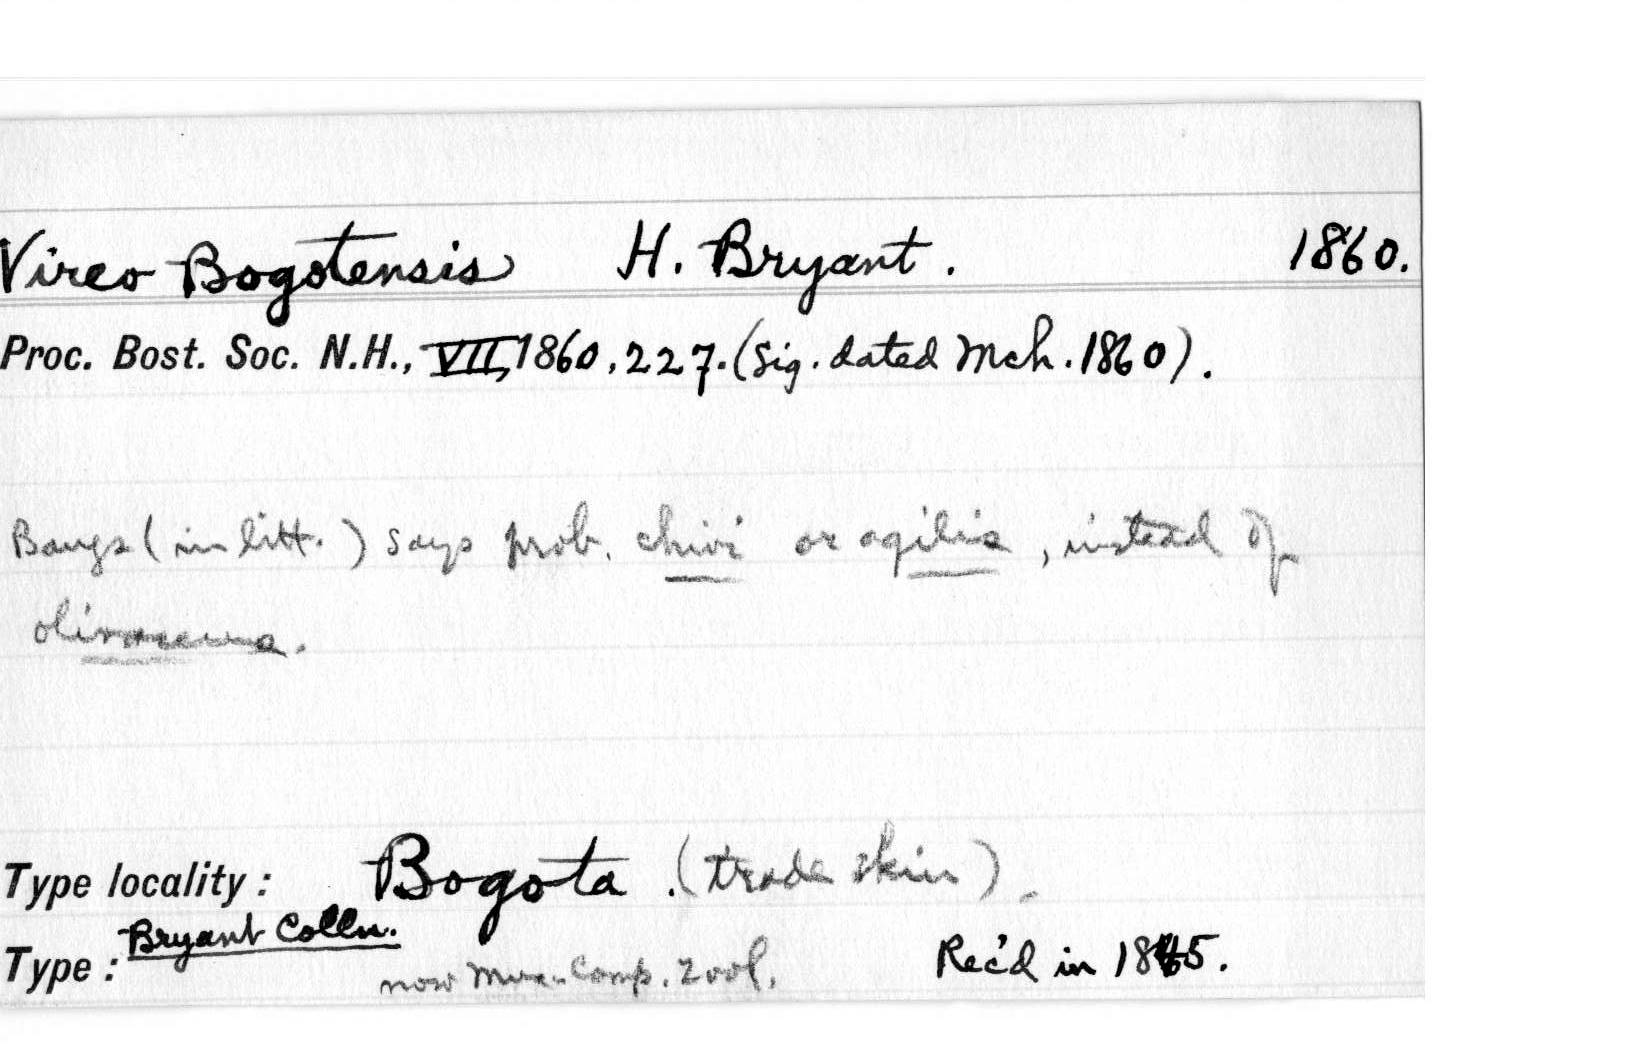 Vireo Bogotensis H. Bryant. 1860.
Proc. Bost. Soc. N.H., VII, 1860, 227. (Sig. dated Mch. 1860).
Bangs (in litt.) says prob. chivi or agilis, instead of
olivaceus.
Type locality: Bogota. (trade skin).
Bryant Colln.
Type: now Mus. Comp. Zool. Rec'd in 1845.